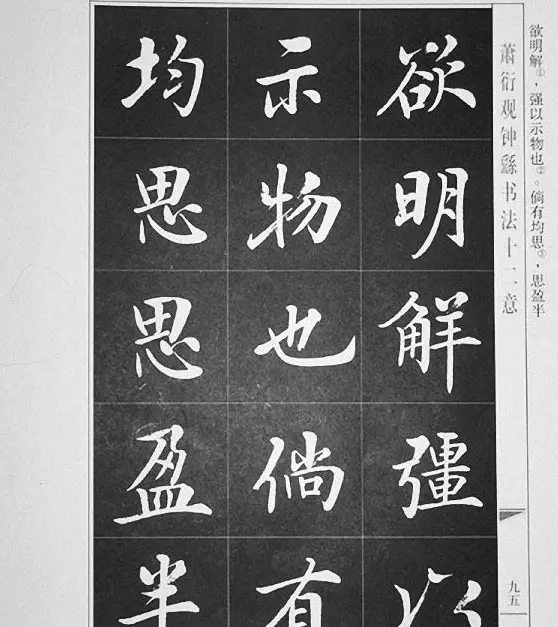 欲明解①，强以示物也②。倘有均思③，思盈半
萧衍观钟繇书法十二意
九五
欲明解彊以
示物也倘有
均思思盈半